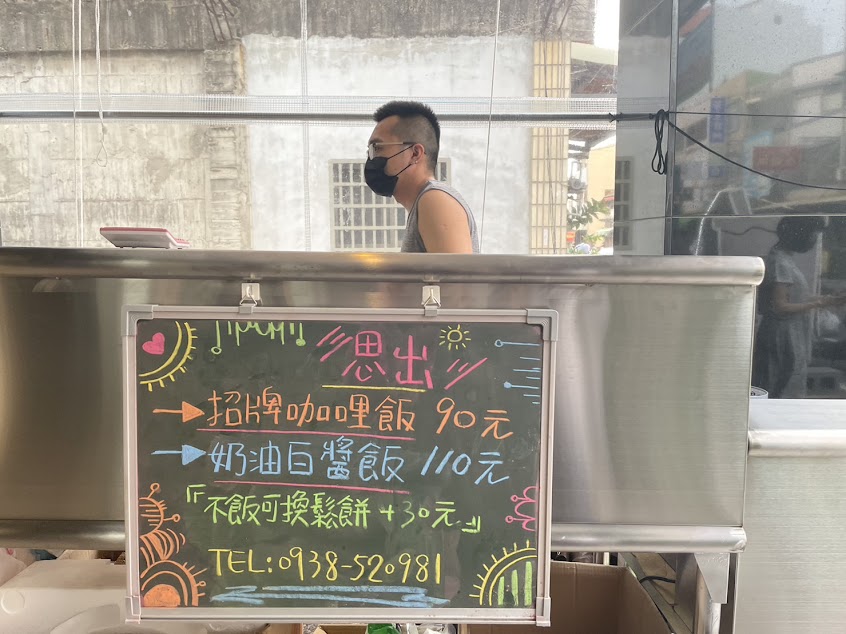 思出
招牌咖哩飯 90元
奶油白醬飯 110元
『不飯可換鬆餅 +30元』
TEL:0938-520981